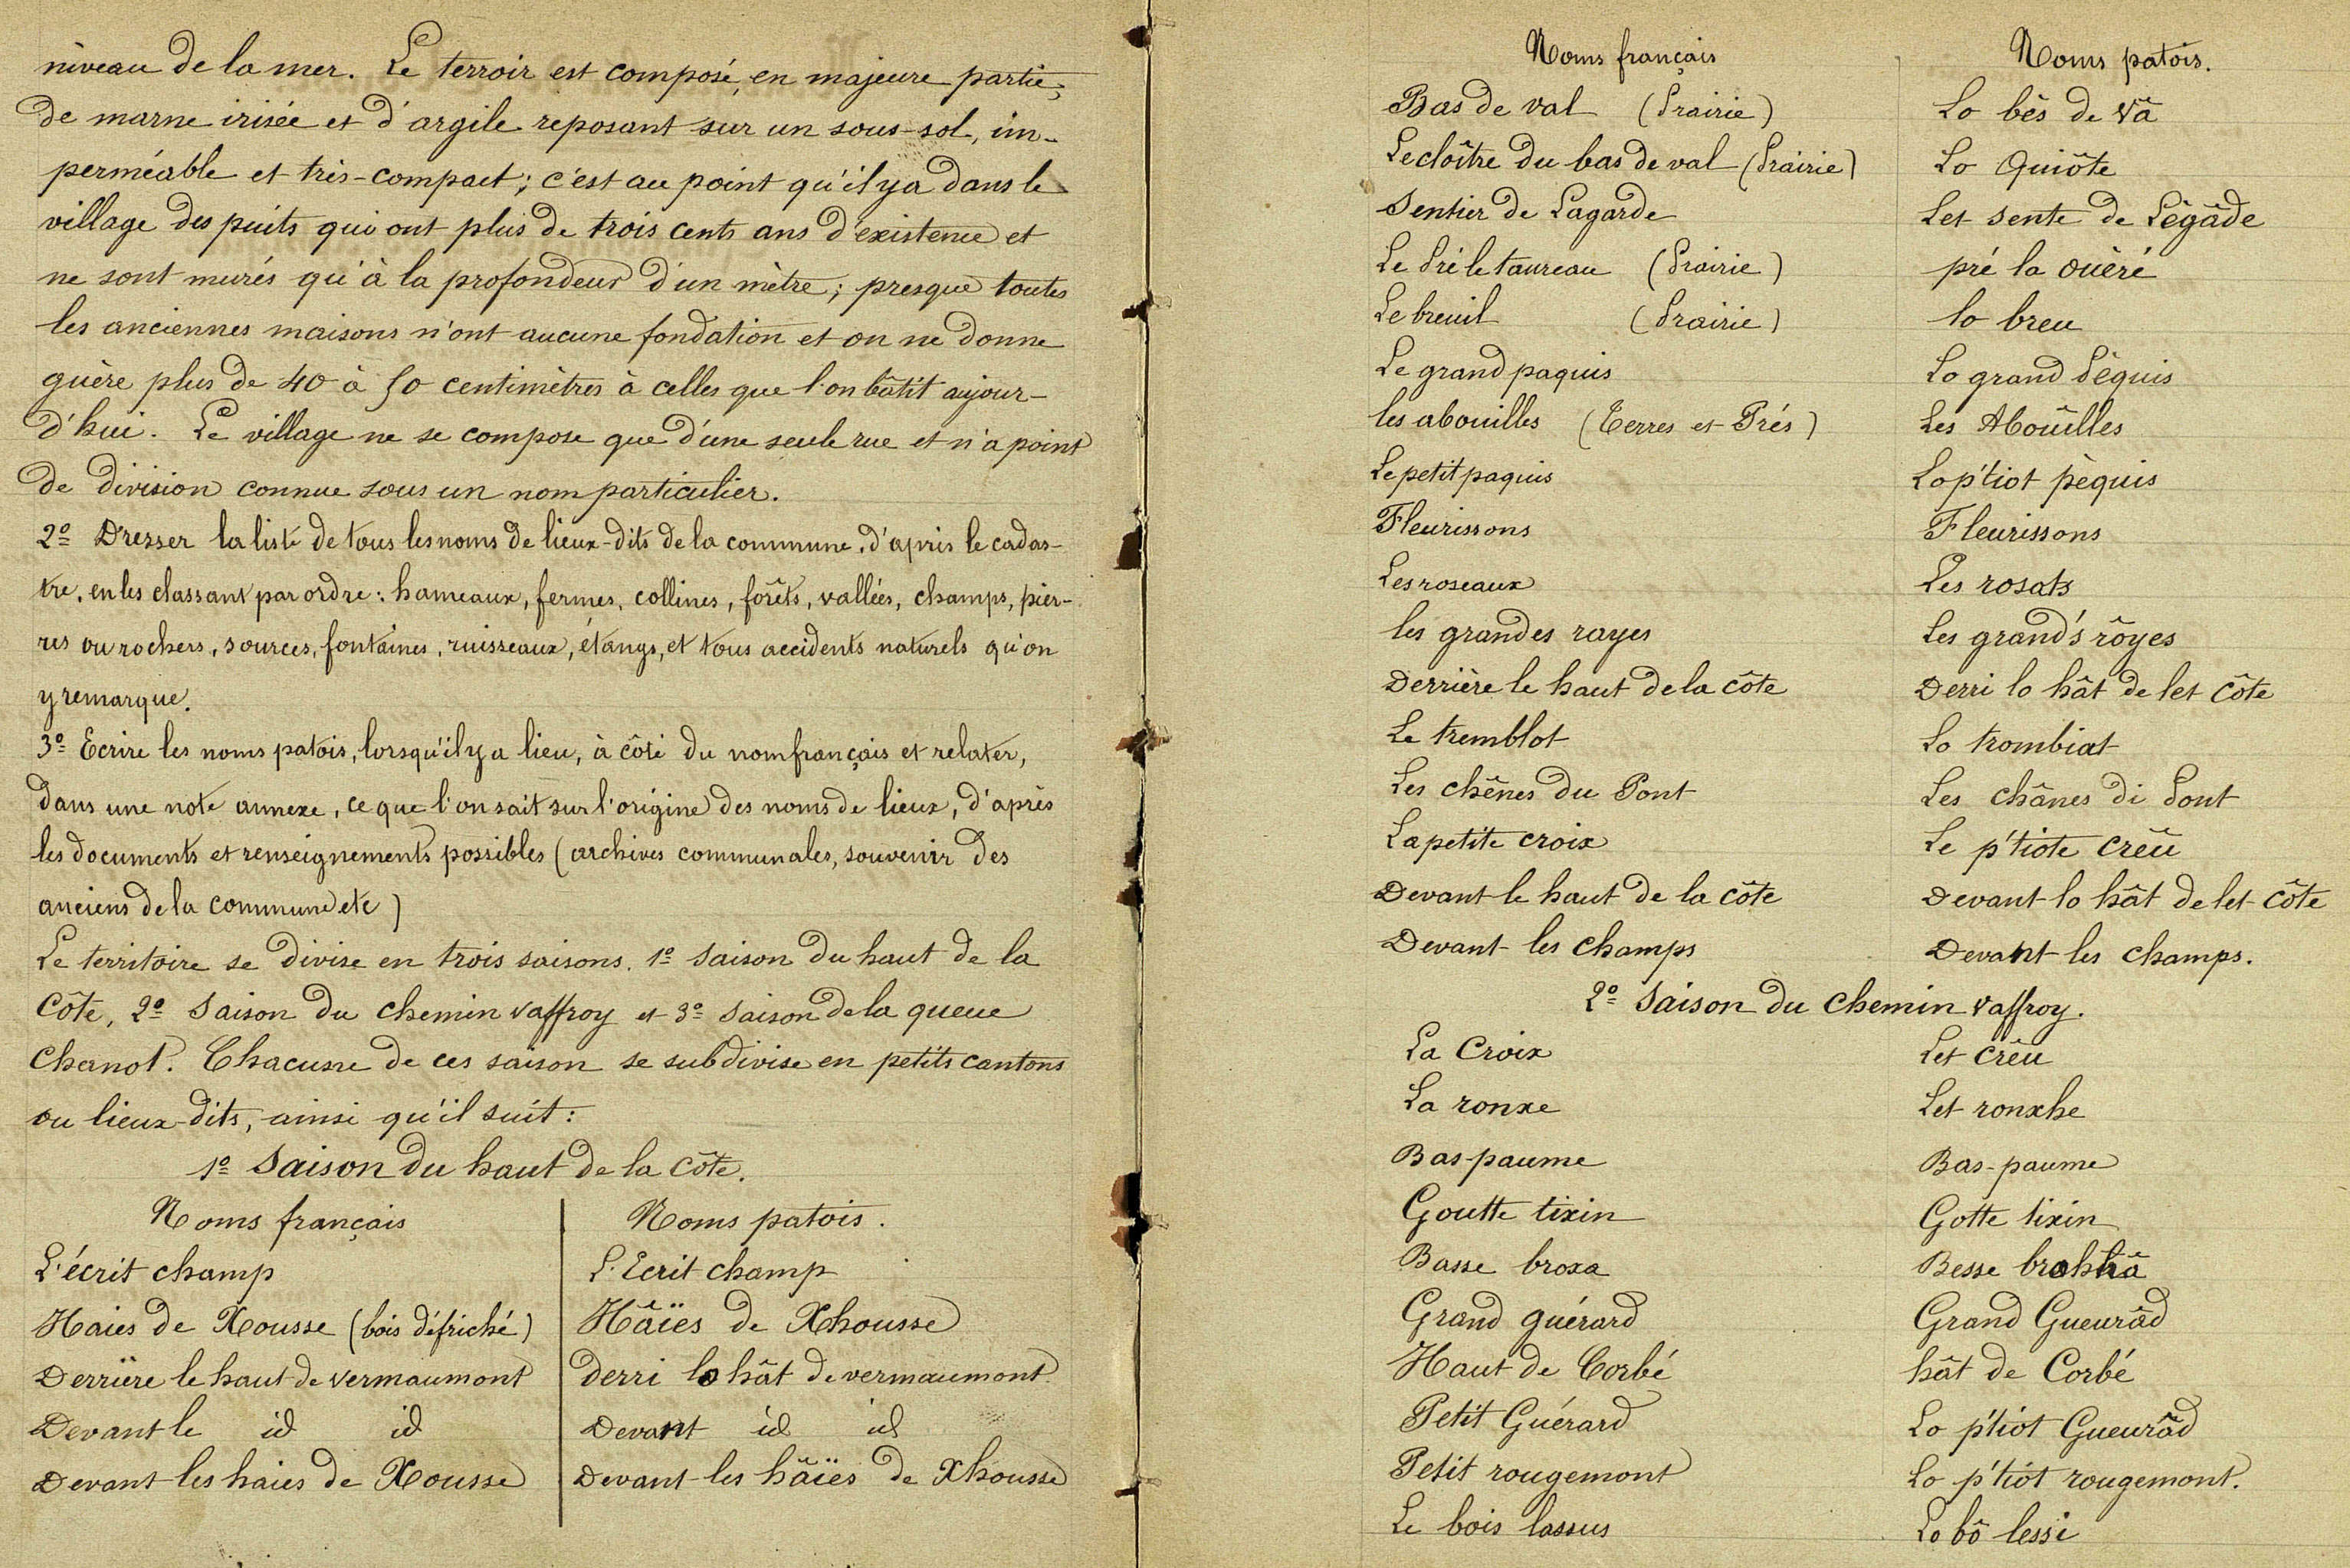 niveau de la mer. Le terroir est composé, en majeure partie,
de marne irisée et d'argile reposant sur un sous-sol, im-
perméable et très-compact; c'est au point qu'il y a dans le
village des puits qui ont plus de trois cents ans d'existence et
ne sont murés qu'à la profondeur d'un mètre; presque toutes
les anciennes maisons n'ont aucune fondation et on ne donne
guère plus de 40 à 50 centimètres à celles que l'on bâtit aujour-
d'hui. Le village ne se compose que d'une seule rue et n'a point
de division connue sous un nom particulier.
2º Dresser la liste de tous les noms de lieux-dits de la commune, d'après le cadas-
tre, en les classant par ordre: hameaux, fermes, collines, forêts, vallées, champs, pier-
res ou rochers, sources, fontaines, ruisseaux, étangs, et tous accidents naturels qu'on
y remarque.
3º Ecrire les noms patois, lorsqu'il y a lieu, à côté du nom français et relater,
dans une note annexe, ce que l'on sait sur l'origine des noms de lieux, d'après
les documents et renseignements possibles (archives communales, souvenir des
anciens de la commune etc)
Le territoire se divise en trois saisons. 1º Saison du haut de la
Côte, 2º Saison du chemin Vaffroy et 3º Saison de la queue
Chanot. Chacune de ces saison se subdivise en petits cantons
ou lieux-dits, ainsi qu'il suit:
1º Saison du haut de la Côte.
Noms français Noms patois.
L'écrit champ L'Ecrit champ
Haies de Xousse (bois défriché) Hâïes de Xhousse
Derrière le haut de Vermaumont derri lo hât de vermaumont
Devant le id id Devant id id
Devant les haies de Xousse Devant les hâïes de Xhousse
Noms français Noms patois.
Bas de val (Prairie) Lo bês de Vâ
Le cloître du bas de val (Prairie) Lo Quiôte
Sentier de Lagarde Let sente de Lêgâde
Le Pré le taureau (Prairie) pré la ouèré
Le breuil (Prairie) lo breu
Le grand paquis Lo grand Pèquis
les abouilles (Terres et Prés) Les Aboûilles
Le petit paquis Lo p'tiot pèquis
Fleurissons Fleurissons
Les roseaux Les rosats
les grandes rayes Les grand's rôyes
Derrière le haut de la côte Derri lo hât de let Côte
Le tremblot Lo trombiat
Les chênes du Pont Les chânes di Pont
La petite croix Le p'tiote crêû
Devant le haut de la côte Devant lo hât de let Côte
Devant les champs Devant les champs.
2º Saison du chemin Vaffroy.
La Croix Let crêu
La ronxe Let ronxhe
Bas-paume Bas-paume
Goutte tixin Gotte tixin
Basse broxa Besse brohhâ
Grand guérard Grand Gueurâd
Haut de Corbé hât de Corbé
Petit Guérard Lo p'tiot Gueurâd
Petit rougemont Lo p'tiot rougemont.
Le bois lassus Lo bô lessi